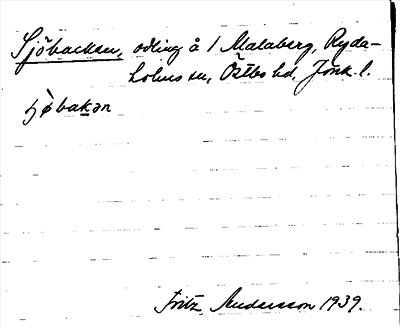 Sjöbacken, odling å 1 Malaberg, Ryda-
holms sn, Östbo hd, Jönk. l.
ʃø̀bakən
Fritz Andersson 1939.